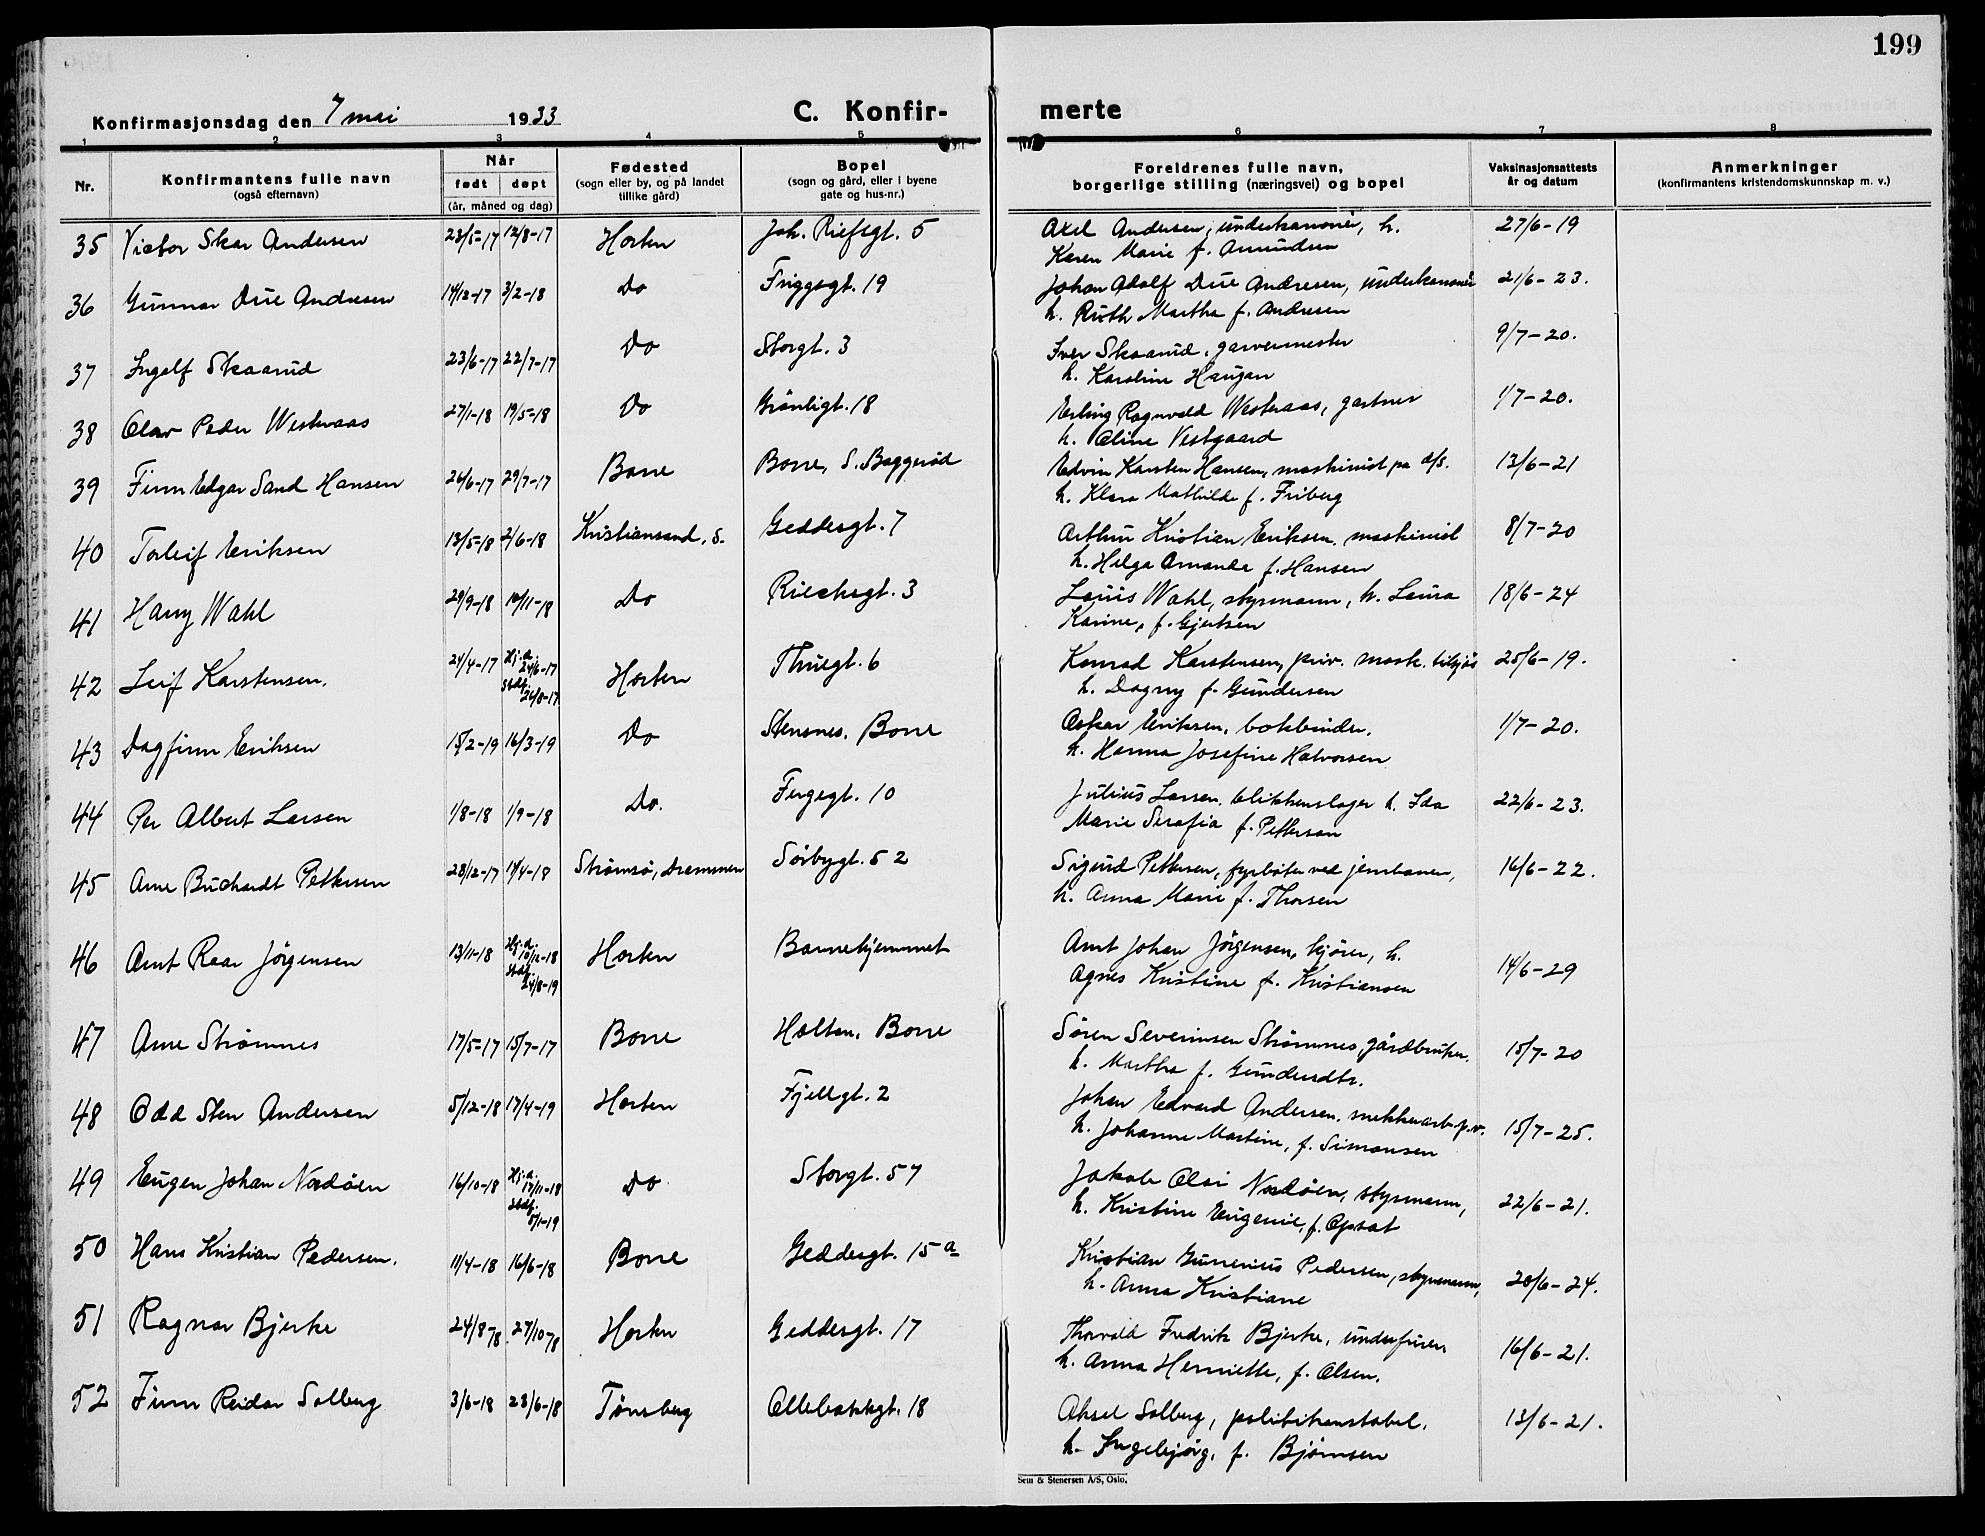 199
Konfirmasjonsdag den 7 mai 1933 C. Konfir- merte
1 2 3 4 5 6 7 8
Nr. Konfirmantens fulle navn (også efternavn) Når født døpt (år, måned og dag) Fødested (sogn eller by, og på landet tillike gård) Bopel (sogn og gård, eller i byene gate og hus-nr.) Foreldrenes fulle navn, borgerlige stilling (næringsvei) og bopel Vaksinasjonsattests år og datum Anmerkninger (konfirmantens kristendomskunnskap m. v.)
35 Victor Skar Andersen 23/5-17 12/8-17 Horten Joh. Riefsgt. 5 Axel Andersen, underkanoner, h. 27/6-19
Karen Marie f. Amundsen
36 Gunnar Due Andresen 14/12-17 3/2-18 Do Friggsgt. 19 Johan Adolf Due Andresen, underkanoner 21/6-23.
h. Ruth Martha f. Andresen
37 Ingolf Skaarud 23/6-17 22/7-17 Do Storgt. 3 Iver Skaarud, garvermester 9/7-20.
h. Karoline Haugan
38 Olav Peder Westeraas 27/1-18 19/5-18 Do Grønligt. 18 Erling Ragnvald Westeraas, gartner 1/7-20.
h. Aline Vestgaard
39 Finn Edgar Sand Hansen 26/6-17 29/7-17 Borre Borre, S. Baggerød Edvin Karsten Hansen, maskinist pa d/s. 13/6-21
h. Klara Mathilde f. Friberg
40 Torleif Eriksen 13/5-18 2/6-18 Kristiansand, S. Geddesgt. 7 Arthur Kristian Eriksen, maskinist 8/7-20
h. Helga Amanda f. Hansen
41 Harry Wahl 29/9-18 10/11-18 Do Riechsgt. 3 Louis Wahl, styrmann, h. Laura 18/6-24
Karine, f. Gjertsen
42 Leif Karstensen. 24/4-17 Hj.d. 24/6-17 Stadf. 26/8-17 Horten Thuegt. 6 Konrad Karstensen, priv. mask. 25/6-19.
h. Dagny f. Gundersen
43 Dagfinn Eriksen 15/2-19 16/3-19 Do Stensnes. Borre Oskar Eriksen, bokbinder. 1/7-20.
h. Hanna Josefine Halvorsen
44 Per Albert Larsen 1/8-18 1/9-18 Do. Fergegt. 10 Julius Larsen. blikkenslager h. Ida 22/6-23.
Marie Serafia f. Petterson
45 Arne Buchardt Pettersen 28/12-17 1/4-18 Strømsø, Drammen Sørbygt. 52 Sigurd Pettersen, fyrbøter ved jernbanen, 16/6-22.
h. Anna Marie f. Thorsen
46 Arnt Roar Jørgensen 13/11-18 Hj.d. 10/12-18 Stadf. 24/8-19 Horten Barnehjemmet Arnt Johan Jørgensen, kjører, h. 14/6-29
Agnes Kristine f. Kristiansen
47 Arne Strømnes 17/5-17 15/7-17 Borre Holtan. Borre Søren Severinsen Strømnes, gårdbruker. 15/7-20
h. Martha f. Gundersdtr.
48 Odd Sten Andersen 5/12-18 17/4-19 Horten Fjellgt. 2 Johan Edvard Andersen. mekk.arb. p.v. 15/7-25.
h. Johanne Martine, f. Simonsen
49 Eugen Johan Nordøen 16/10-18 Hj.d. 17/11-18 Stadf. 5/1-19 Do Storgt. 57 Jakob Olai Nordøen, styrmann, 22/6-21.
h. Kristine Eugenie, f. Opsal
50 Hans Kristian Pedersen. 11/4-18 16/6-18 Borre Geddesgt. 15a Kristian Gunerius Pedersen, styrmann, 20/6-24.
h. Anna Kristiane
51 Ragnar Bjerke 24/8-18 27/10-18 Horten Geddesgt. 17 Thorvald Fredrik Bjerke, underfurer 16/6-21.
h. Anna Henriette, f. Olsen.
52 Finn Reidar Solberg 3/6-18 23/6-18 Tønsberg Ollebakkgt. 18 Aksel Solberg, politikonstabel. 13/6-21.
h. Ingebjørg, f. Bjørnsen
Sem & Stenersen A/S, Oslo.